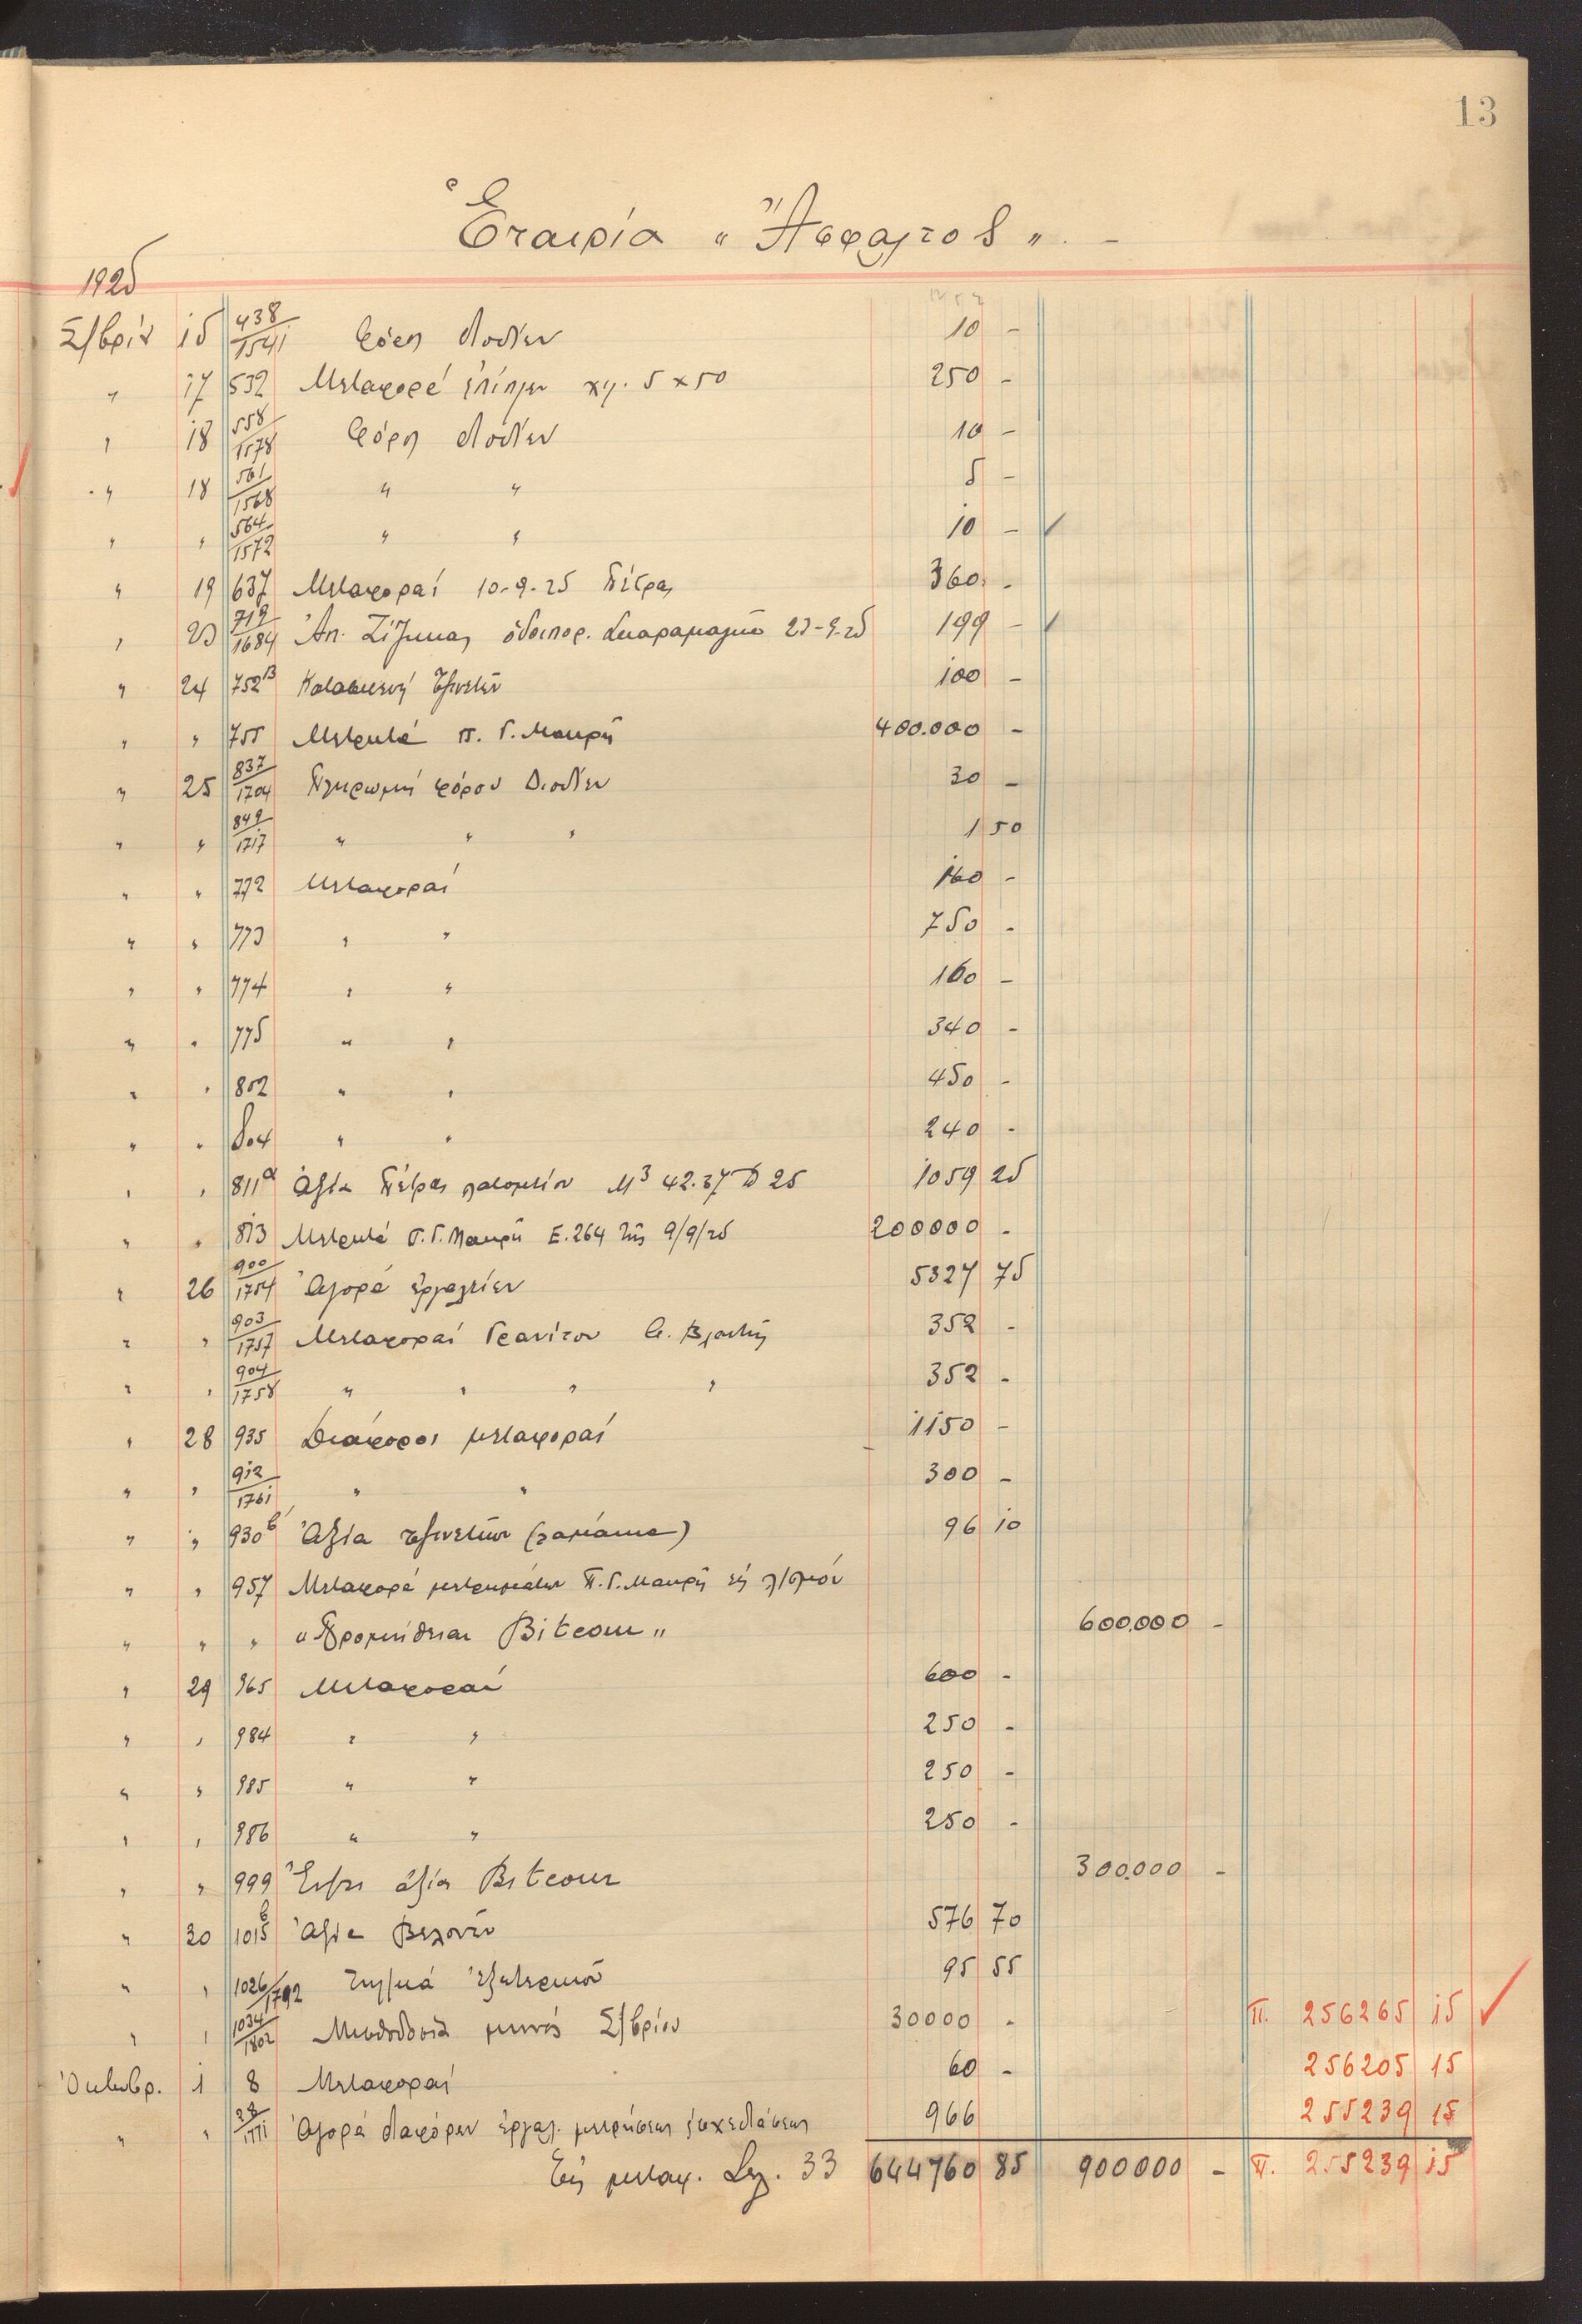 13
Ἑταιρία „ Ἄσφαλτος „ . –
1925
Σ/βρίου 15 438/1541 Φόρος διοδίων 10 –
„ 17 532 Μεταφορά ἐπίπλων χιλ. 5 x 50 250 –
„ 18 558/1578 Φόρος διοδίων 10 –
„ 18 561/1568 „ „ 5 –
„ „ 564/1572 „ „ 10 –
„ 19 637 Μεταφοραί 10-9-25 Πέτρας 360 –
„ 23 719/1684 Ἀπ. ὁδοιπορ. Σκαραμαγκᾶ 23-9-25 199 –
„ 24 752β Κατασκευή 100 –
„ „ 755 Μετρητά Π. Γ. Μακρῆ 400.000 –
„ 25 837/1704 Πληρωμή φόρου Διοδίων 30 –
„ „ 849/1717 „ „ „ 1 50
„ „ 772 Μεταφοραί 160 –
„ „ 773 „ „ 750 –
„ „ 774 „ „ 160 –
„ „ 775 „ „ 340 –
„ „ 802 „ „ 450 –
„ „ 804 „ „ 240 –
„ „ 811α Ἀξία Πέτρας λατομείου Μ3 42.37 25 1059 25
„ „ 813 Μετρητά Π. Γ. Μακρῆ Ε.264 τῆς 9/9/25 200000 –
„ 26 900/1754 Ἀγορά ἐργαλείων 5327 75
„ „ 903/1757 Μεταφοραί Γρανίτου 352 –
„ „ 904/1758 „ „ „ „ 352 –
„ 28 935 Διάφοροι μεταφοραί 1150 –
„ „ 912/1761 „ „ 300 –
„ „ 930β Ἀξία 96 10
„ „ 957 Μεταφορά μετρημάτων Π. Γ. Μακρῆ εἰς λ/σμόν
„ „ „ „Προμήθειαι Bitcour„ 600.000 –
„ 29 965 Μεταφοραί 600 –
„ „ 984 „ „ 250 –
„ „ 985 „ „ 250 –
„ „ 986 „ „ 250 –
„ „ 999 ἀξία Bitcour 300.000 –
„ 30 1015β Ἀξία Βελονῶν 576 70
„ „ 1026/1792 ἐξωτερικοῦ 95 55
„ „ 1034/1802 Μισθοδοσία μηνός Σ/βρίου 30000 – Π. 256265 15
Ὀκτωβρ. 1 8 Μεταφοραί 60 – 256205 15
„ „ 28/1771 Ἀγορά διαφόρων ἐργαλ. μετρήσεως ἐ σχεδιάσεως 966 255239 15
Εἰς μεταφ. Σελ. 33 644760 85 900000 – Π. 255239 15